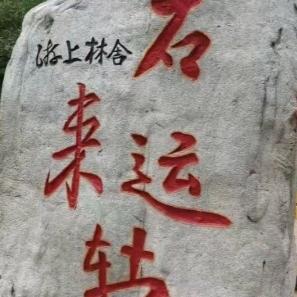 石来运转
上林舍